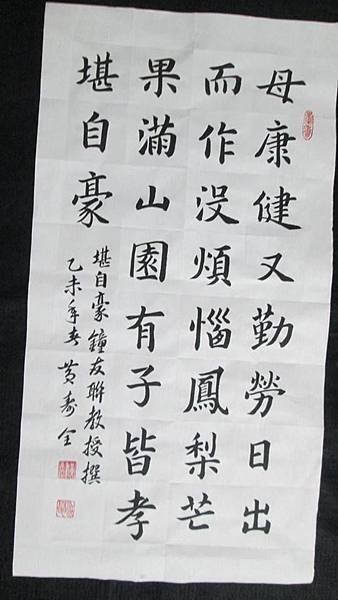 母康健又勤勞日出
而作没煩惱鳳梨芒
果滿山園有子皆孝
堪自豪
堪自豪鐘友聯教授撰
乙未年春 黃壽全